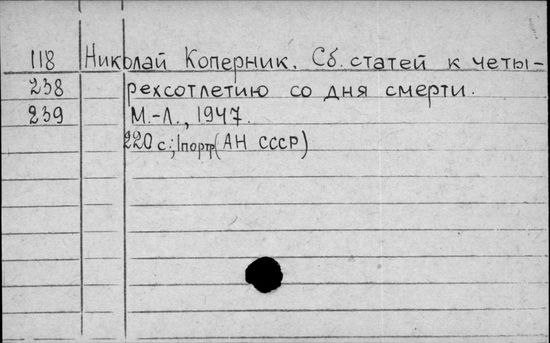 118 Николай Коперник. Сб. статей к четы-
238 рехсотлетию со дня смерти.
239 М.-Л., 1947.
220 с.; 1портр (АН СССР)